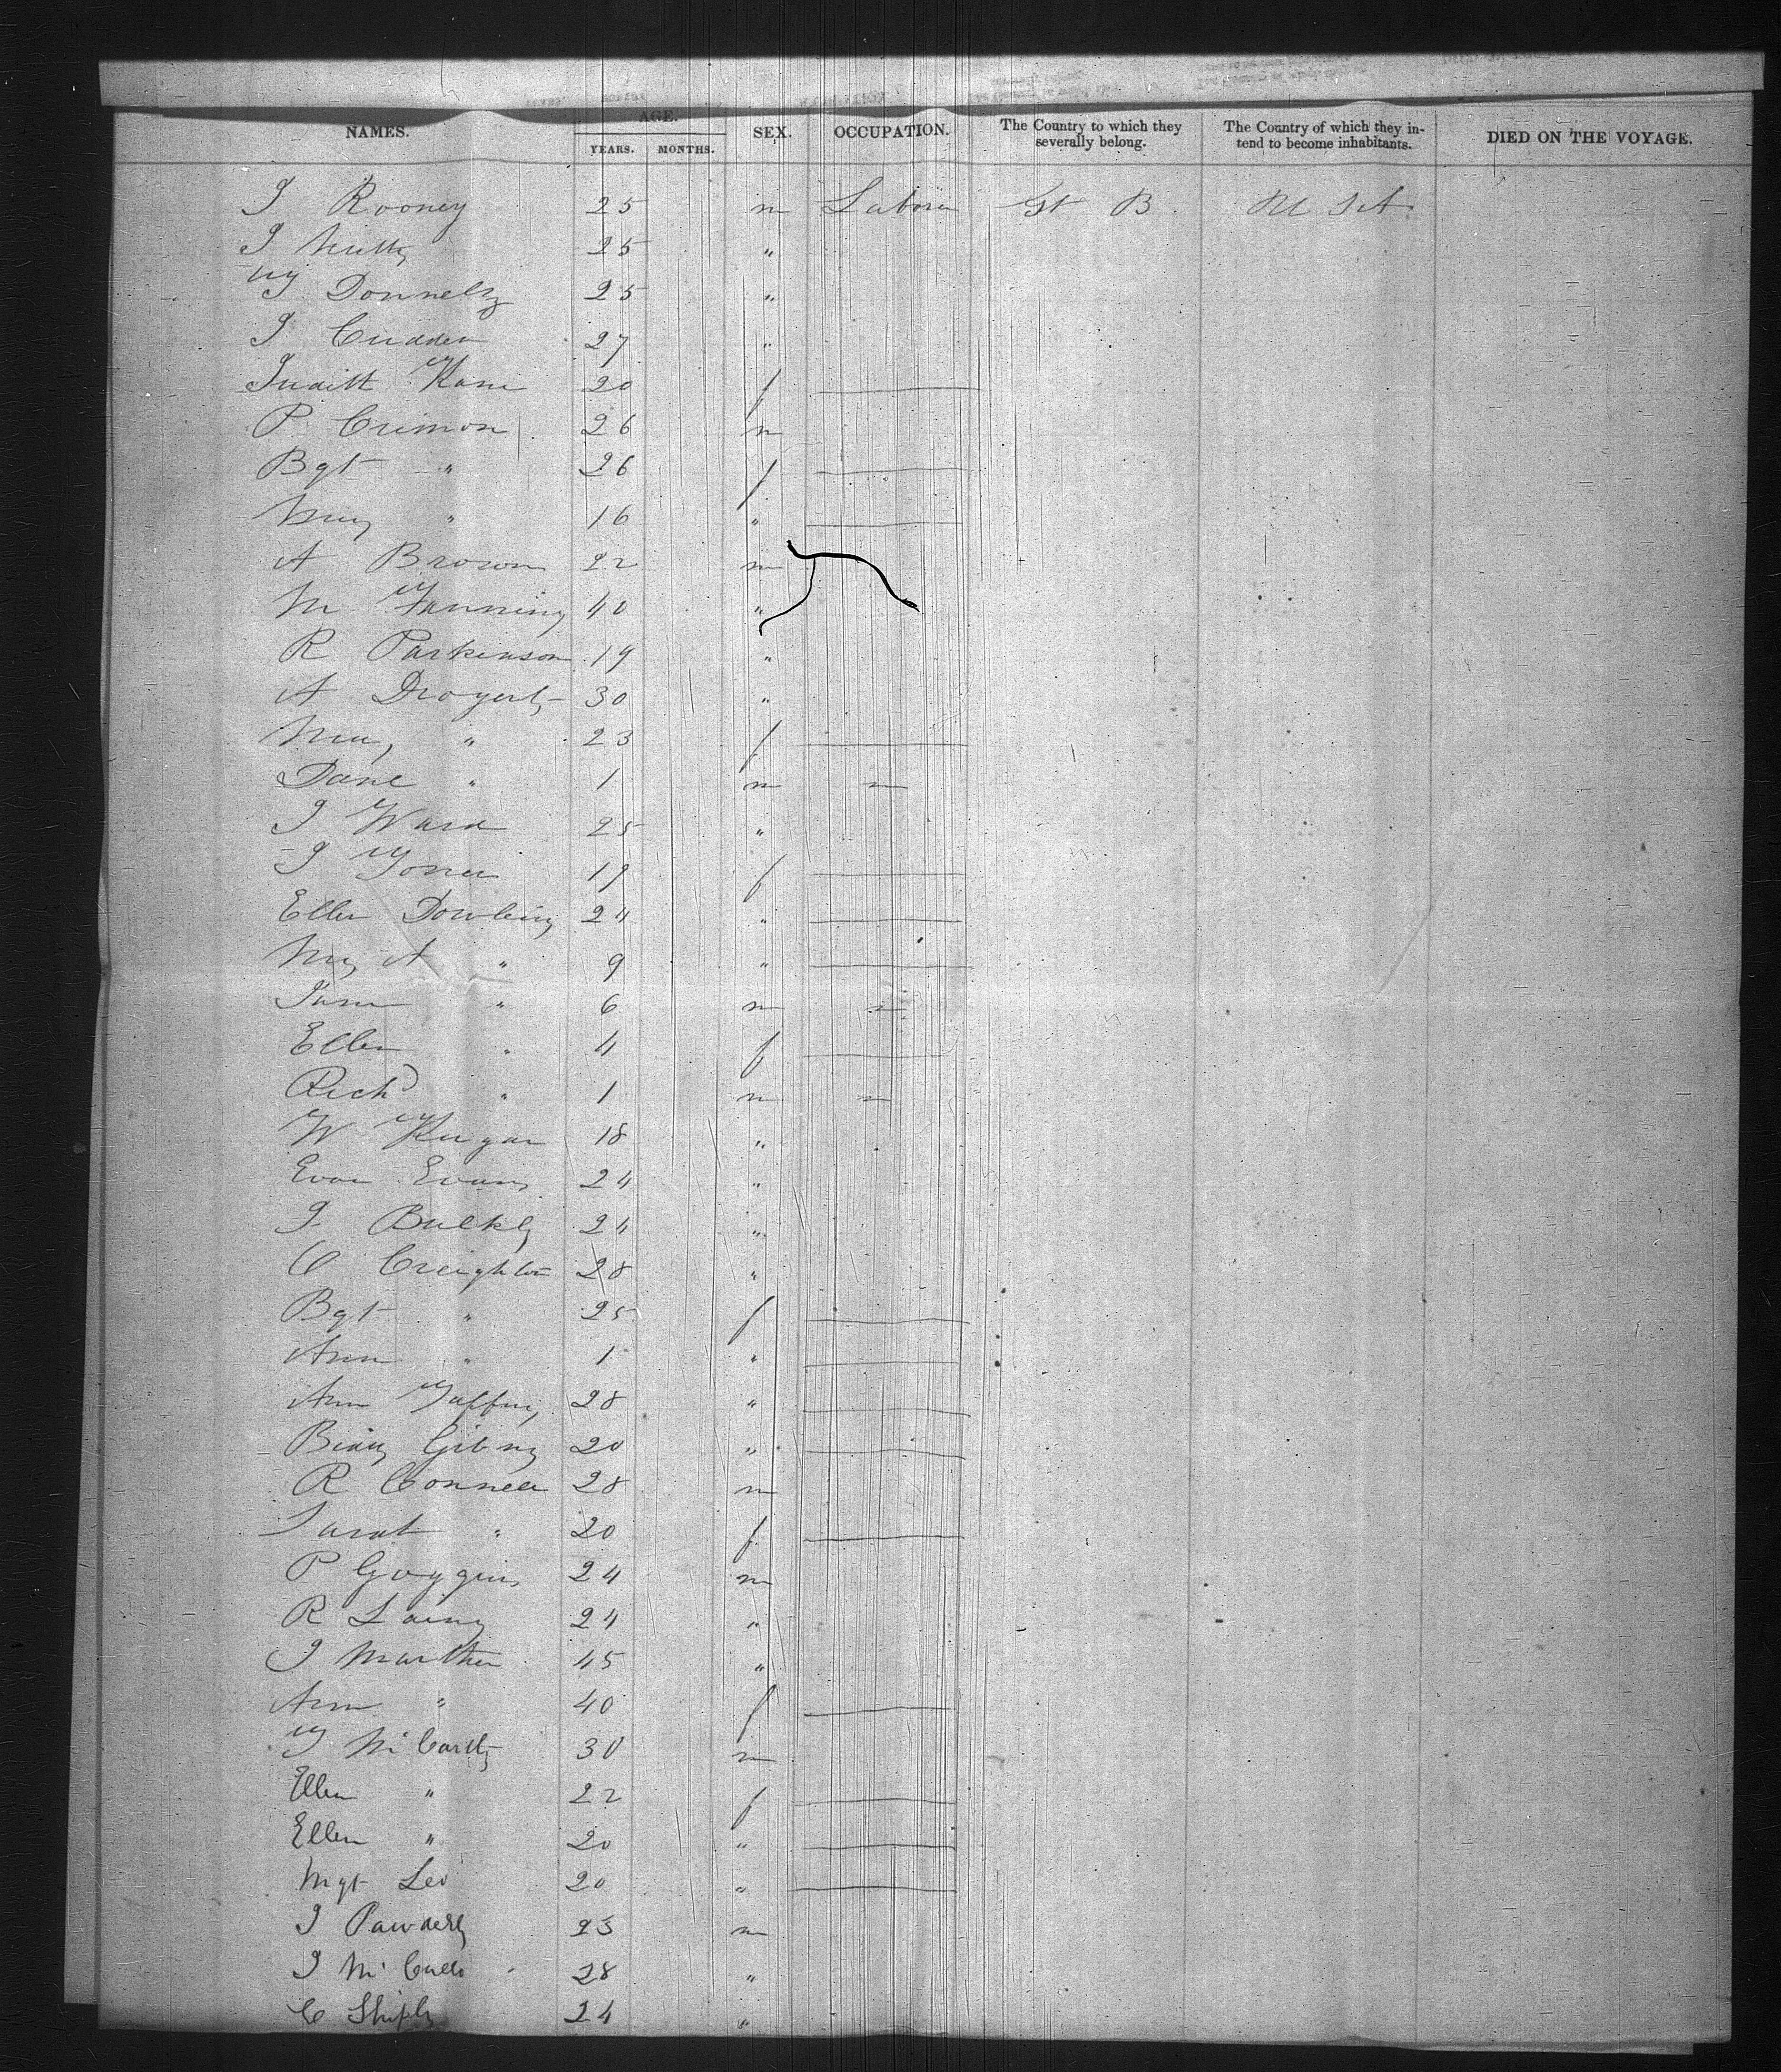 NAMES. AGE. YEARS. MONTHS. SEX. OCCUPATION. The Country to which they severally belong. The Country of which they intend to become inhabitants. DIED ON THE VOYAGE.
J Rooney 25 m Laborer Gt B. U S A.
J 25 "
T Donnelly 25 "
J 27 "
Judith Kane 20 f
P. Crimon 26 m
Bgt " 26 f
Mary " 16 "
A Brown 22 m
M Fanning 40 "
R Parkinson 19 "
A 30 "
Mary " 23 f
" 1 m
J Ward 25 "
J 19 f
Ellen Dowling 24 "
My A " 9 "
" 6 m
Ellen " 4 f
Richd " 1 m
W Keegan 18 "
Evan Evans 24 "
J Bulkly 24 "
C Creighton 28 "
Bgt " 25 f
Ann " 1 "
Ann Gaffney 28 "
Gibny 20 "
R Connell 28 m
Sarah " 20 f
P Goggins 24 m
R Laing 24 "
J 45 "
Ann " 40 f
T McCarthy 30 m
Ellen " 22 f
Ellen " 20 "
Mgt Leo 20 "
J Pawderly 23 m
J 28 "
C Shiply 24 "